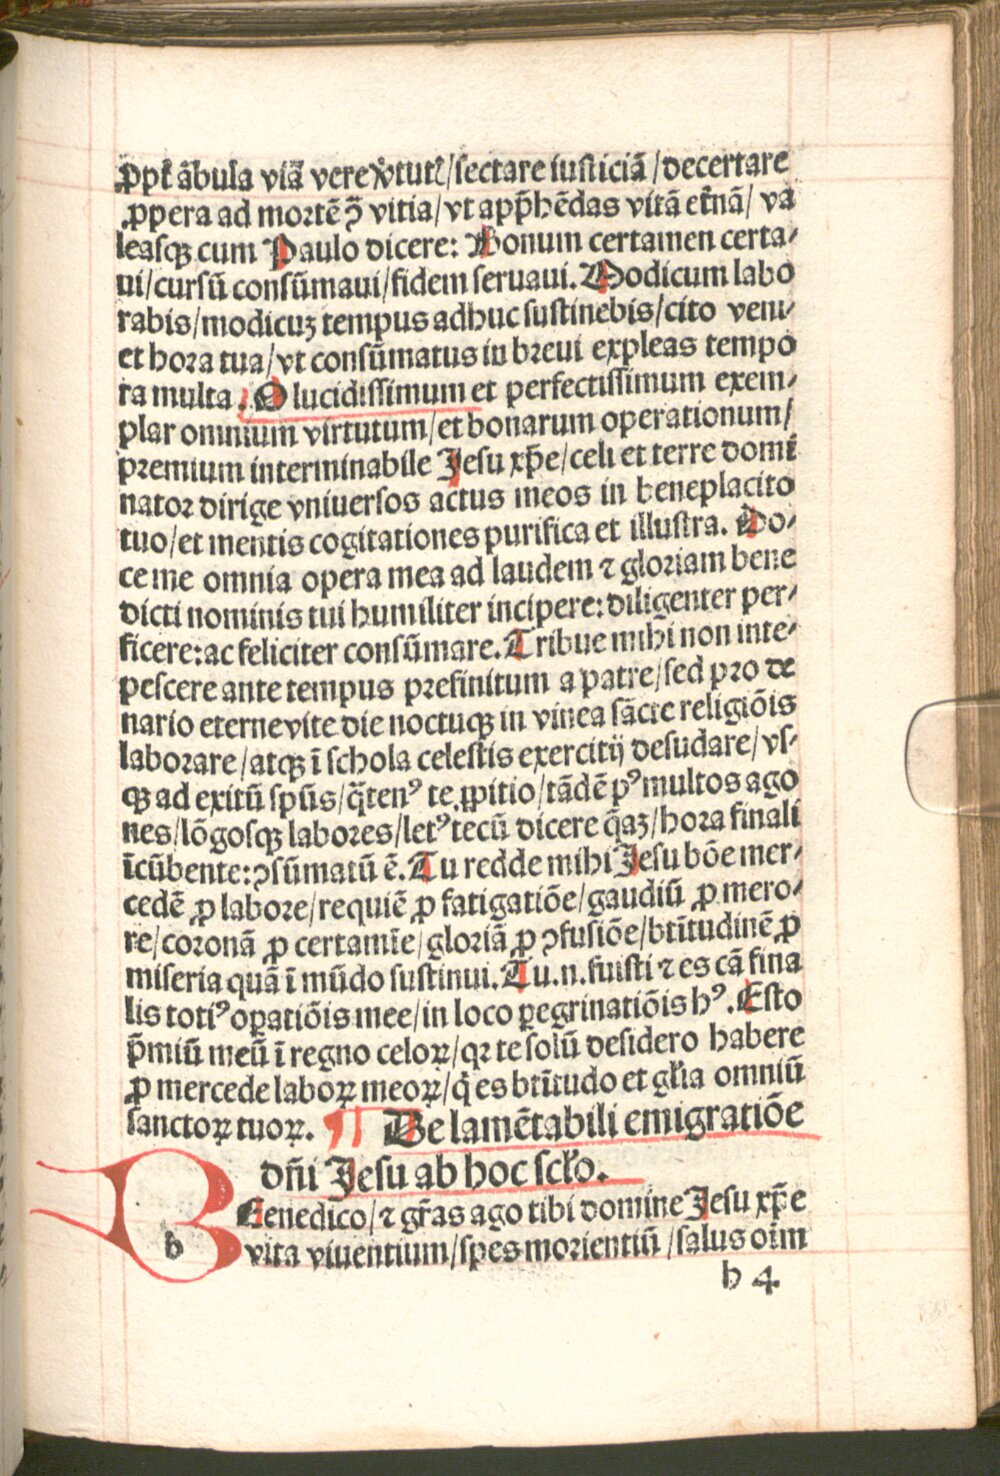 ꝓpt̃ ãbula viã vere v̾tutꝭ/sectare iusticiã/decertare
ꝓpera ad mortẽ ꝯ̃ vitia/vt app̃hẽdas vitã et̃nã/va
leasqꝫ cum Paulo dicere: Bonum certamen certa⸗
ui/cursũ consũmaui/fidem seruaui. Modicum labo
rabis/modicuꝫ tempus adhuc sustinebis/cito veni⸗
et hora tua/vt consũmatus in breui expleas tempo
ra multa. O lucidissimum et perfectissimum exem⸗
plar omnium virtutum/et bonarum operationum/
premium interminabile Jesu xp̃e/celi et terre domĩ
nator dirige vniuersos actus meos in beneplacito
tuo/et mentis cogitationes purifica et illustra. Do⸗
ce me omnia opera mea ad laudem ⁊ gloriam bene
dicti nominis tui humiliter incipere: diligenter per⸗
ficere: ac feliciter consũmare. Tribue mihi non inte⸗
pescere ante tempus prefinitum a patre/sed pro de
nario eterne vite die noctuqꝫ in vinea sãcte religiõis
laborare/atqꝫ ĩ schola celestis exercitij desudare/vs⸗
qꝫ ad exitũ spũs/q̃tenꝰ te ꝓpitio/tãdẽ pꝰ multos ago
nes/lõgosqꝫ labores/letꝰ tecũ dicere q̃aꝫ/hora finali
ĩcũbente: ꝯsũmatũ ẽ. Tu redde mihi Jesu bõe mer⸗
cedẽ ꝓ labore/requiẽ ꝓ fatigatiõe/gaudiũ ꝓ mero⸗
re/coronã ꝓ certamĩe/gloriã ꝓ ꝯfusiõe/bt̃itudinẽ ꝓ
miseria quã ĩ mũdo sustinui. Tu.n.fuisti ⁊ es cã fina
lis totiꝰ oꝑatiõis mee/in loco ꝑegrinatiõis hꝰ. Esto
p̃miũ meũ ĩ regno celoꝝ/qꝛ te solũ desidero habere
ꝓ mercede laboꝝ meoꝝ/q̇ es bt̃itudo et gl̃ia omniũ
sanctoꝝ tuoꝝ. ¶ De lamẽtabili emigratiõe
dñi Jesu ab hoc scl̃o.
b Benedico/⁊ gr̃as ago tibi domine Jesu xp̃e
vita viuentium/spes morientiũ/salus oĩm
h 4